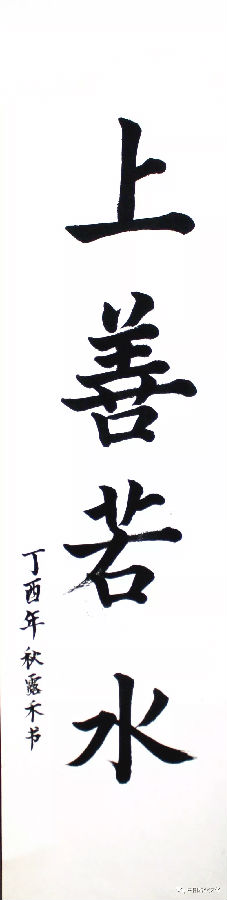 上善若水
丁酉年秋露禾书